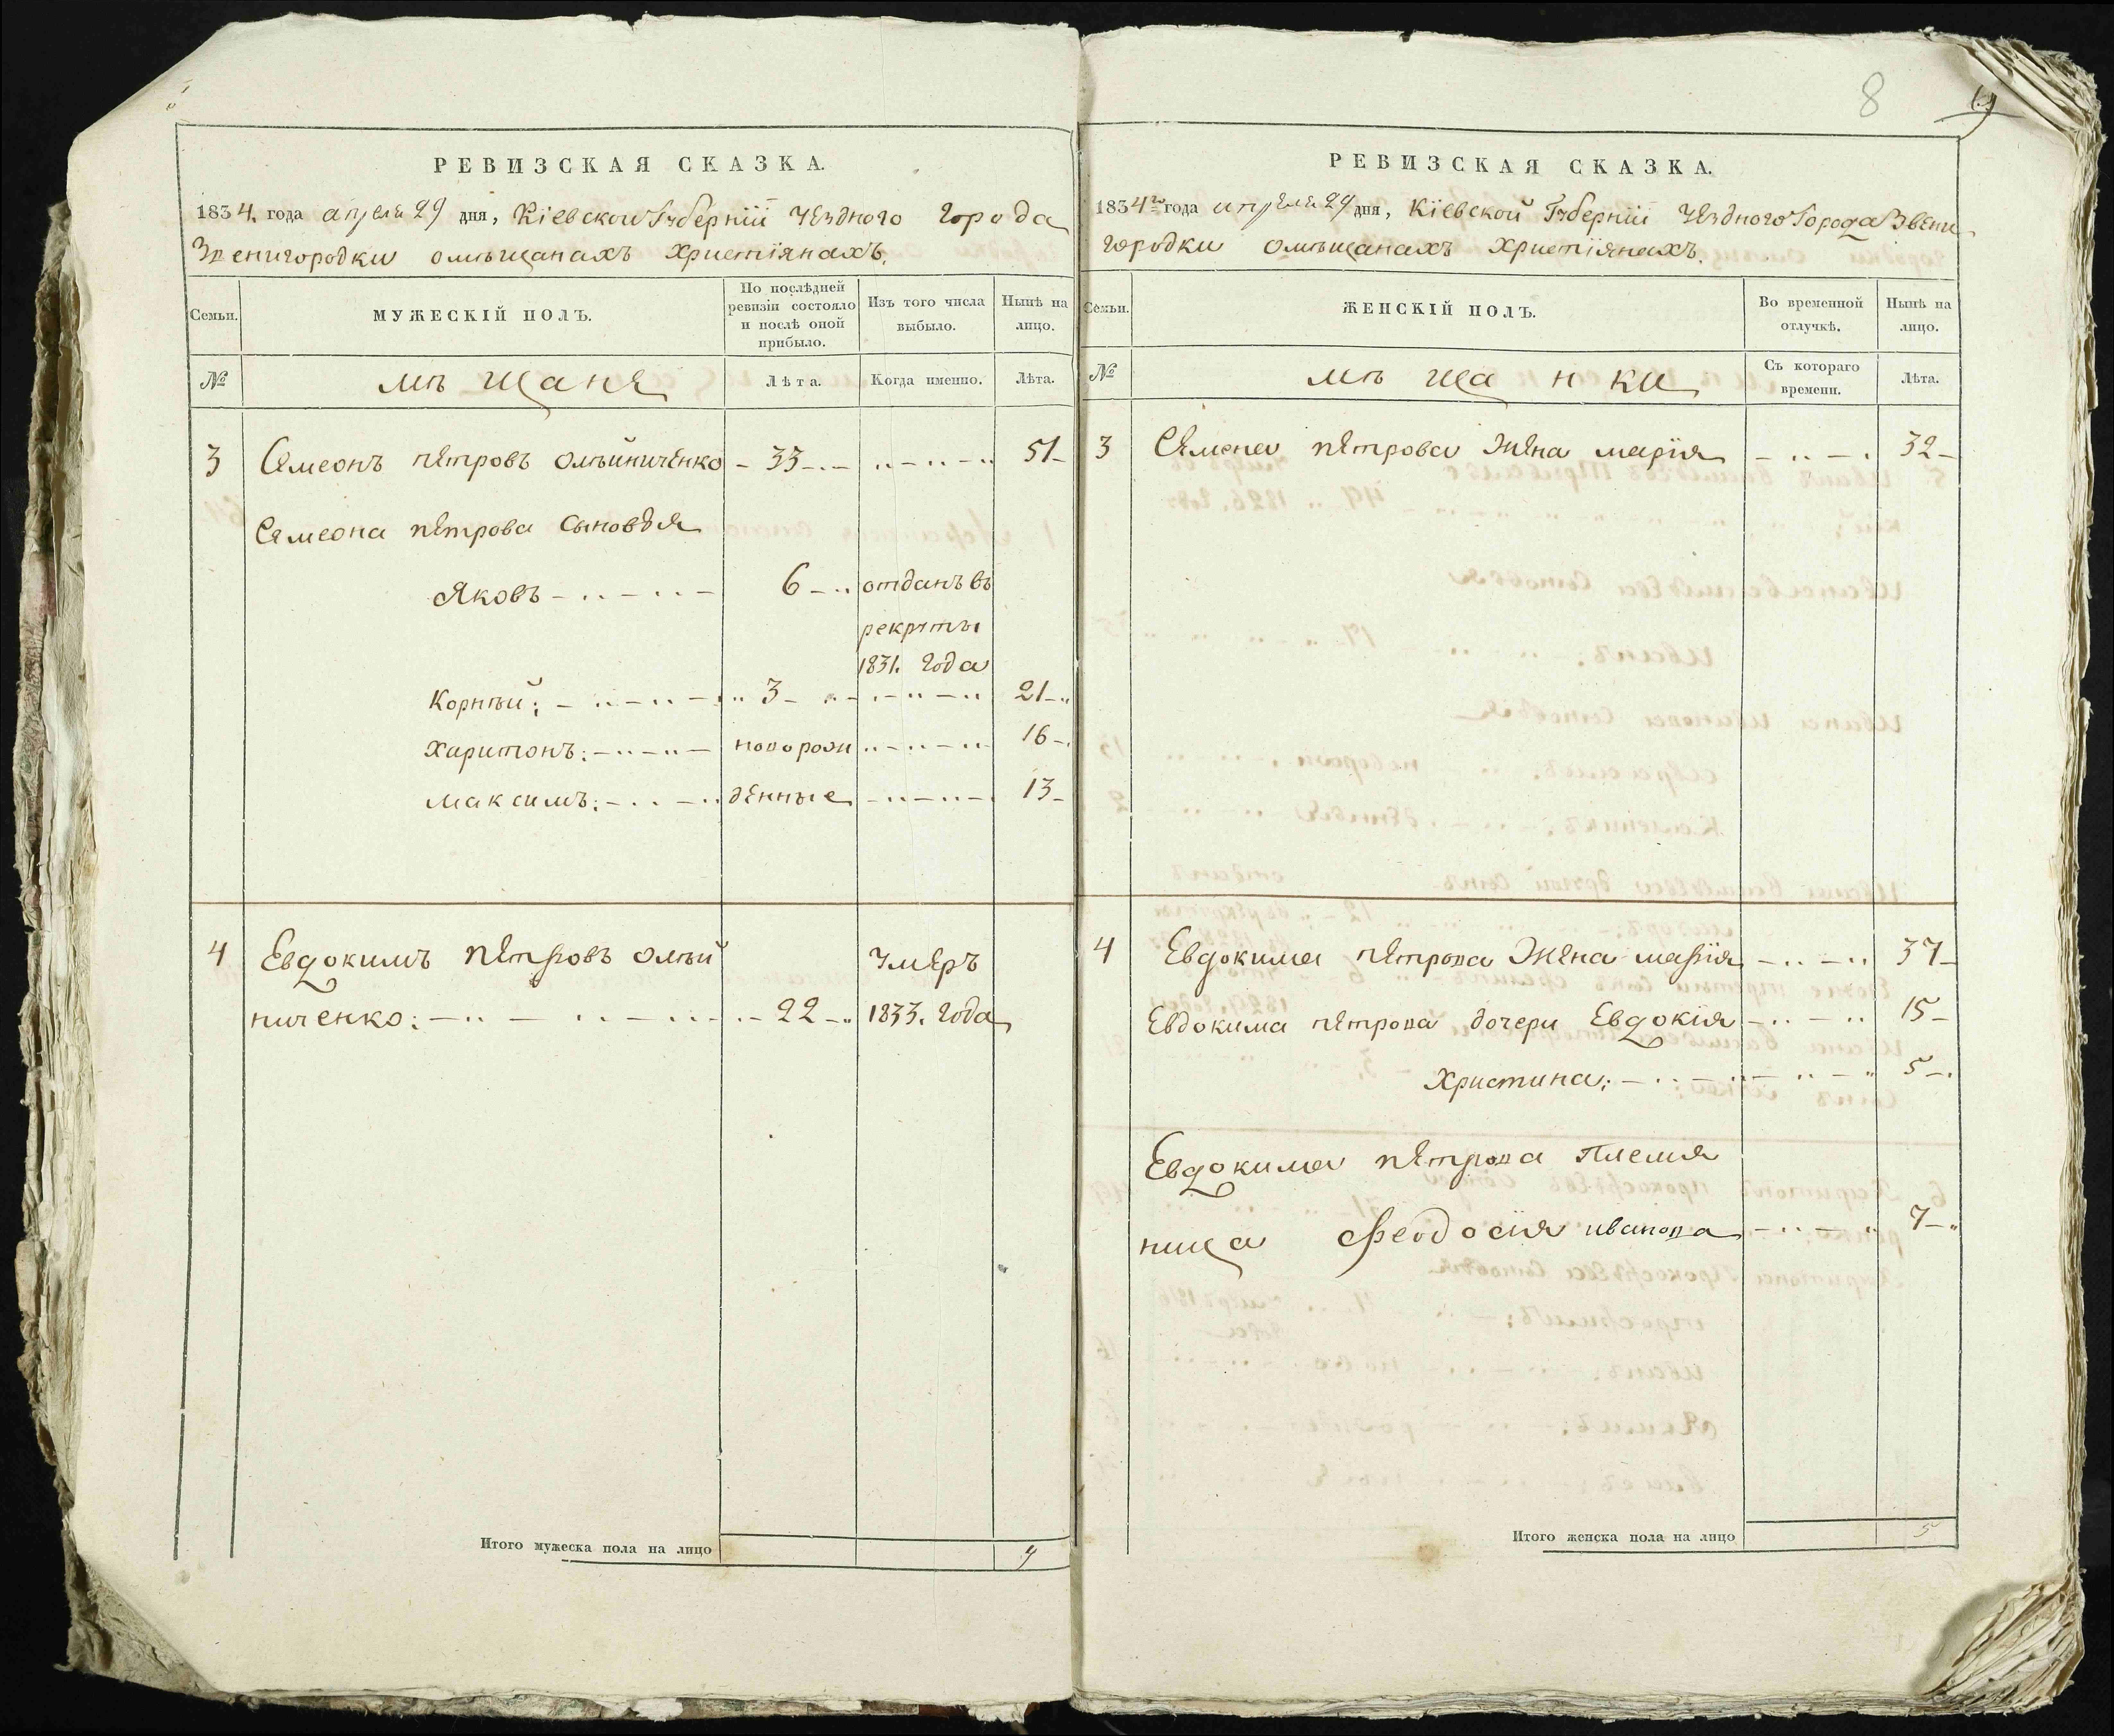 8
РЕВИЗСКАЯ СКАЗКА.
1834. года апреля 29 дня, Кіевской Губерніи Уездного города
Звенигородки омѣщанахъ Христіянахъ.
Семьи.
МУЖЕСКІЙ ПОЛЪ.
По послѣдней ревизіи состояло и послѣ оной прибыло.
Изъ того числа выбыло.
Нынѣ на лицо.
№
мѣщане
Лѣта.
Когда именно.
Лѣта.
3 Семеонъ пѣтровъ олѣйниченко 33 51
Семеона пѣтрова сыновья
Яковъ 6 отданъ въ
рекруты
1831. года
Корнѣй: 3 21
Харитонъ: новорож 16
Максимъ: денные 13
4 Евдокимъ пѣтровъ олѣй умеръ
ниченко: 22 1833. года
Итого мужеска пола на лицо 4
РЕВИЗСКАЯ СКАЗКА.
1834го года апреля 29 дня, Кіевской Губерніи Уездного Города Звени
городки омѣщанахъ Христіянахъ.
Семьи.
ЖЕНСКІЙ ПОЛЪ.
Во временной отлучкѣ.
Нынѣ на лицо.
№
мѣщанки
Съ котораго времени.
Лѣта.
3 Семена пѣтрова жена марія 32
4 Евдокима пѣтрова жена марія 37
Евдокима пѣтрова дочери Евдокія 15
Христина: 5
Евдокима пѣтрова племя
ница Феодосія иванова 7
Итого женска пола на лицо 5